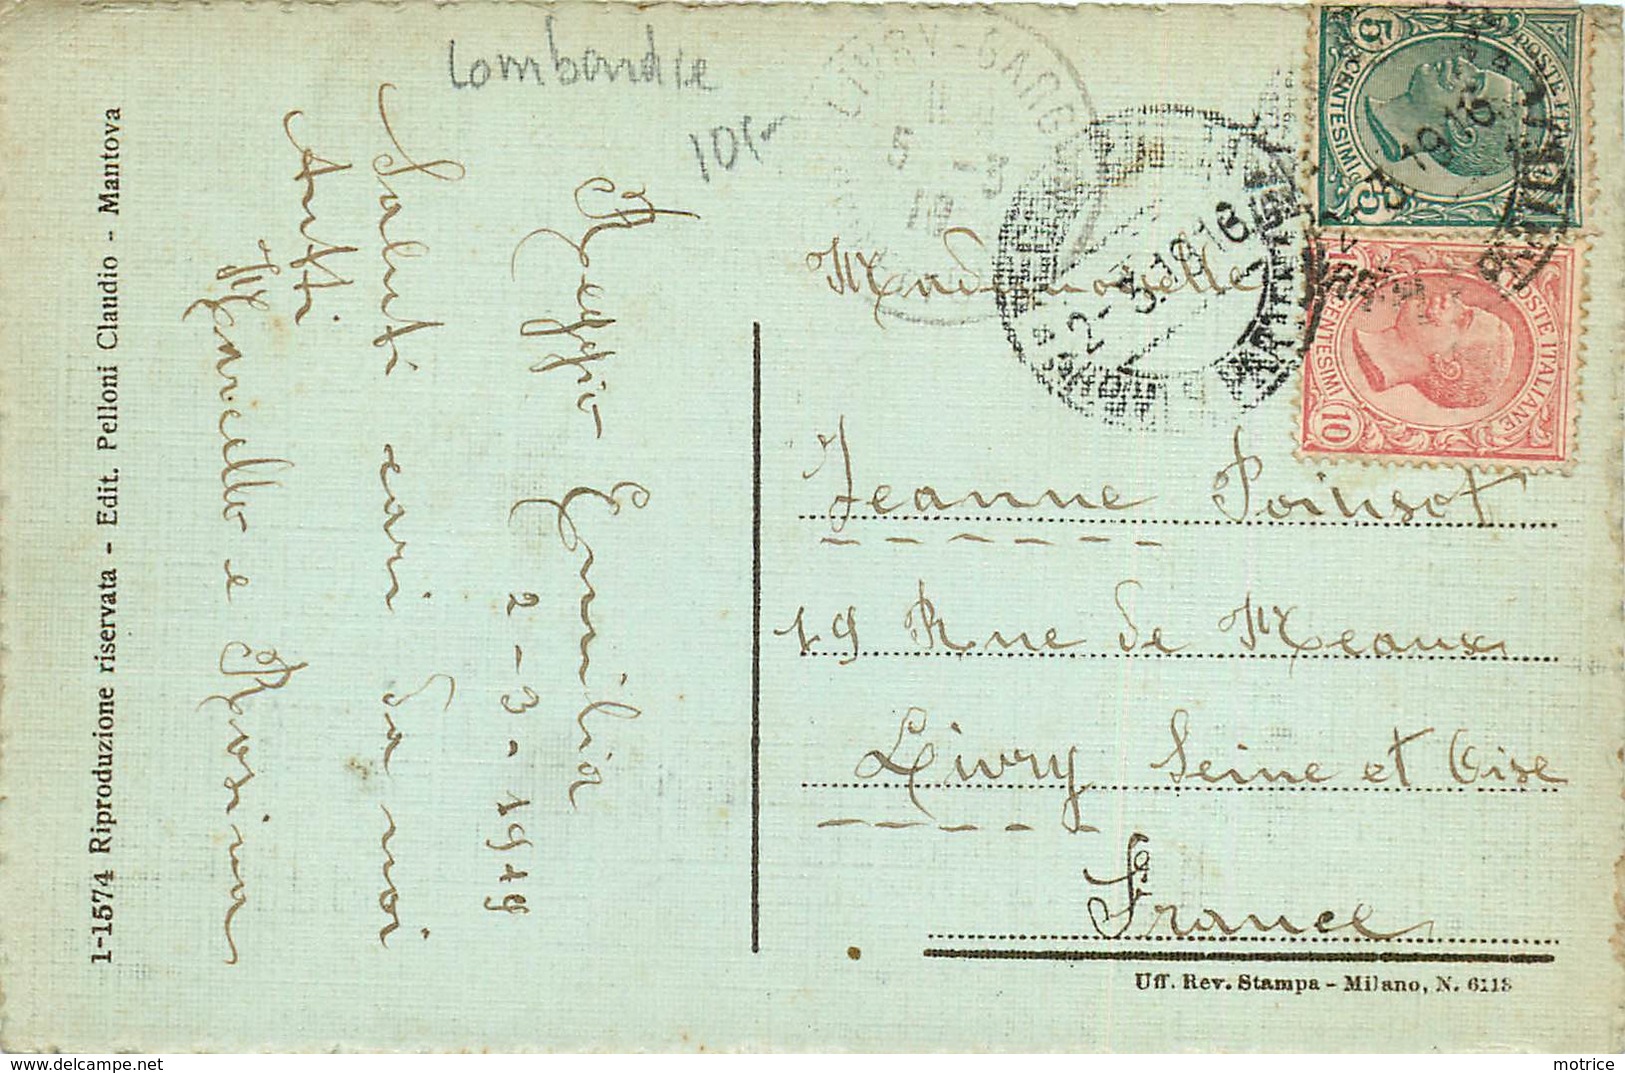 Lombardie
10f-
Reggio Emilia
2-3-1919
Saluti cari da noi
tutti
Marcello e Rosina
1-1574 Riproduzione riservata - Edit. Pelloni Claudio - Mantova
LIVRY-GARG
5 -3
19
2-3.19 16
POSTE ITALIANE
5 CENTESIMI 5
POSTE ITALIANE
CENTESIMI 10
Mademoiselle
Jeanne Poinsot
19 Rue de Meaux
Livry Seine et Oise
France
Uff. Rev. Stampa - Milano, N. 6118
motrice